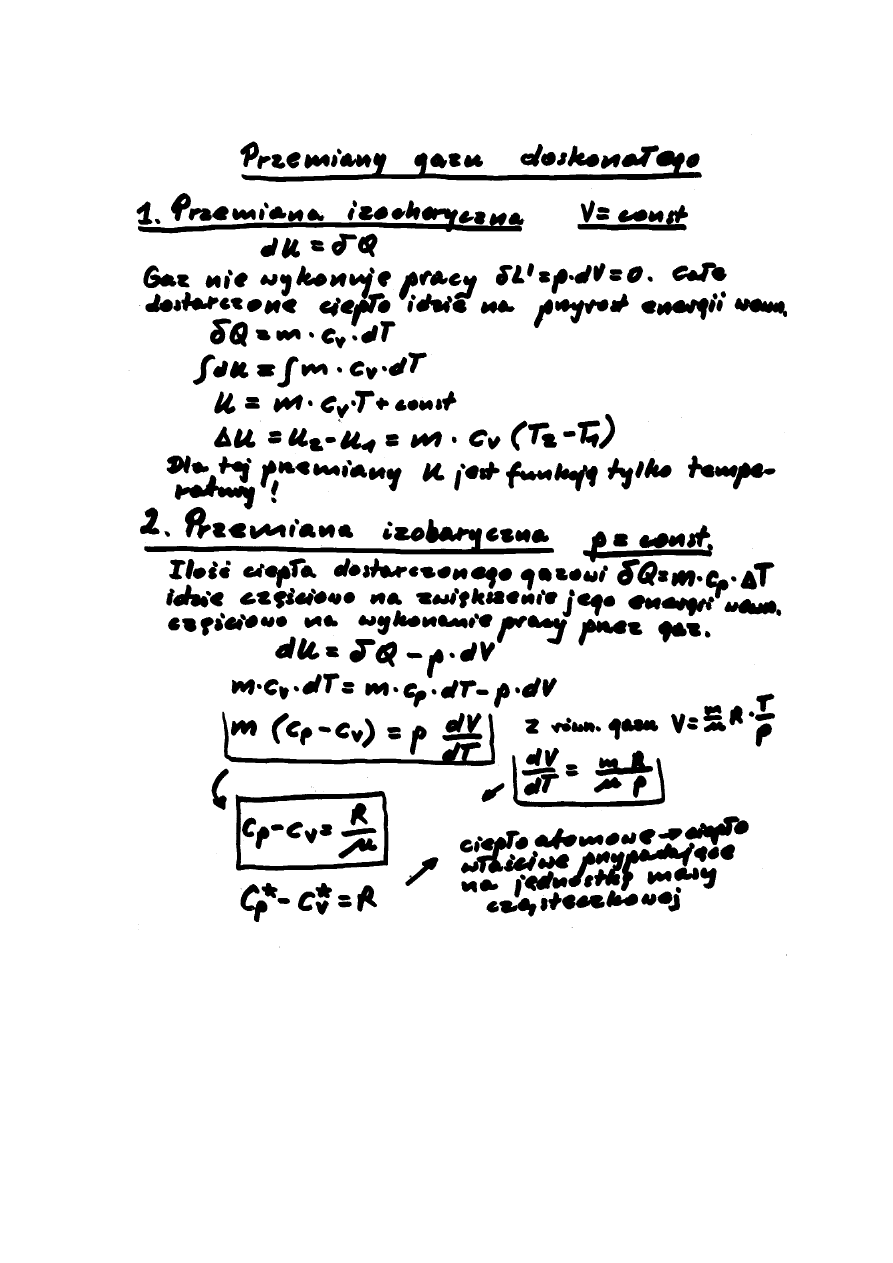 Przemiany gazu doskonałego
1. Przemiana izochoryczna V = const
dU = δQ
Gaz nie wykonuje pracy δL' = p·dV = 0. Całe
dostarczone ciepło idzie na przyrost energii wewn.
δQ = m · c_v · dT
∫dU = ∫m · c_v · dT
U = m · c_v · T + const
ΔU = U₂ - U₁ = m · c_v (T₂ - T₁)
Dla tej przemiany U jest funkcją tylko tempe-
ratury!
2. Przemiana izobaryczna p = const.
Ilość ciepła dostarczonego gazowi δQ = m·c_p·ΔT
idzie częściowo na zwiększenie jego energii wewn.
częściowo na wykonanie pracy przez gaz.
dU = δQ - p·dV
m·c_v·dT = m·c_p·dT - p·dV
m (c_p - c_v) = p dV/dT z równ. gazu V = m/μ R · T/p
dV/dT = m R / μ p
c_p - c_v = R/μ
ciepło atomowe → ciepło
właściwe przypadające
na jednostkę masy
cząsteczkowej
C_p* - C_v* = R